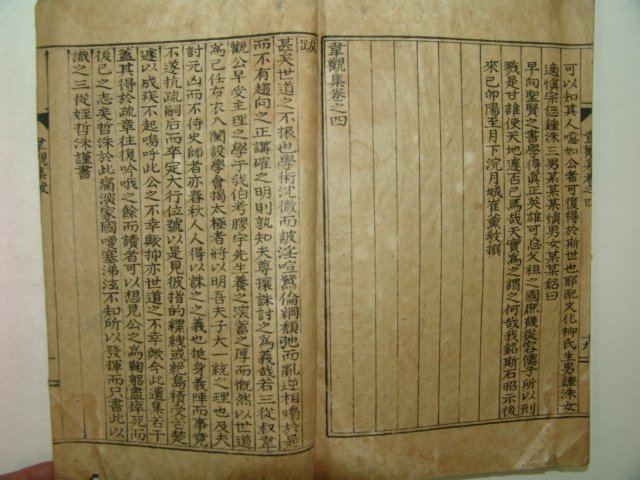 可以如其人噫如公者可復得於斯世也耶配文化柳氏生男鍾洙女
適愼宗㤙鍾洙三男某某某愼男女某某銘曰
早向聖賢之書學得眞正英雄可忘父祖之國庶幾從容儒子所以刑
戮是甘誰使天地遽否已焉哉天實爲之謂之何哉我銘斯石昭示後
來己卯陽至月下浣月城崔薰敎撰
韋觀集卷之四
韋觀集卷之四
跋
甚矣世道之不振也學術沈微而詖淫喧豗倫綱頹弛而亂逆相煽於是
而不有趨向之正講確之明則孰知夫尊攘誅討之爲義哉若三從叔韋
觀公早受主理之學于我伯考膠宇先生養之深蓄之厚而慨然以世道
爲己任布衣入闈設學會揭太極者將以明吾夫子大一統之理也及夫
討元凶而不待史師者亦春秋人人得以誅之之義也挺身義陣而事竟
不遂抗疏嗣后而卒定大行位號以是見彼指的縲絏或絶島積受苦楚
遽以成疾不起嗚呼此公之不幸歟抑亦世道之不幸歟今此遺集若干
蓋其得於疏章往復吟哦之餘而讀者可以想見公之爲鞠躬盡瘁死而
後已之志矣哲洙於此痛淡家國哽塞涕泫不知所以發揮而只書此以
識之三從姪哲洙謹書
韋觀集跋